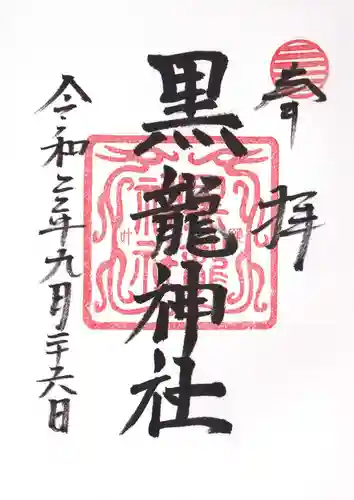 奉拝
黒龍神社
令和三年九月二十六日